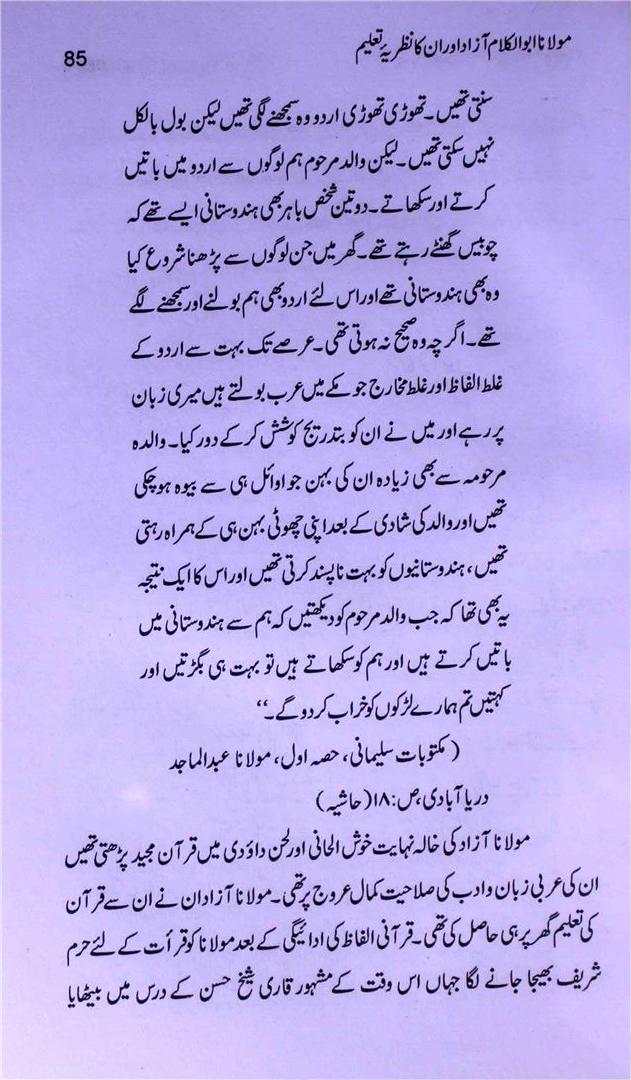 مولانا ابوالکلام آزاد اور ان کا نظریۂ تعلیم
85
سنتی تھیں۔ تھوڑی تھوڑی اردو وہ سمجھنے لگی تھیں لیکن بول بالکل
نہیں سکتی تھیں۔ لیکن والد مرحوم ہم لوگوں سے اردو میں باتیں
کرتے اور سکھاتے۔ دو تین شخص باہر بھی ہندوستانی ایسے تھے کہ
چوبیس گھنٹے رہتے تھے۔ گھر میں جن لوگوں سے پڑھنا شروع کیا
وہ بھی ہندوستانی تھے اور اس لئے اردو بھی ہم بولنے اور سمجھنے لگے
تھے۔ اگرچہ وہ صحیح نہ ہوتی تھی۔ عرصے تک بہت سے اردو کے
غلط الفاظ اور غلط مخارج جو مکے میں عرب بولتے ہیں میری زبان
پر رہے اور میں نے ان کو بتدریج کوشش کر کے دور کیا۔ والدہ
مرحومہ سے بھی زیادہ ان کی بہن جو اوائل ہی سے بیوہ ہو چکی
تھیں اور والد کی شادی کے بعد اپنی چھوٹی بہن ہی کے ہمراہ رہتی
تھیں، ہندوستانیوں کو بہت ناپسند کرتی تھیں اور اس کا ایک نتیجہ
یہ بھی تھا کہ جب والد مرحوم کو دیکھتیں کہ ہم سے ہندوستانی میں
باتیں کرتے ہیں اور ہم کو سکھاتے ہیں تو بہت ہی بگڑتیں اور
کہتیں تم ہمارے لڑکوں کو خراب کر دو گے۔‘‘
(مکتوبات سلیمانی، حصہ اول، مولانا عبدالماجد
دریا آبادی، ص:۱۸ (حاشیہ)
مولانا آزاد کی خالہ نہایت خوش الحانی اور لحن داؤدی میں قرآن مجید پڑھتی تھیں
ان کی عربی زبان و ادب کی صلاحیت کمال عروج پر تھی۔ مولانا آزادان نے ان سے قرآن
کی تعلیم گھر پر ہی حاصل کی تھی۔ قرآنی الفاظ کی ادائیگی کے بعد مولانا کو قرأت کے لئے حرم
شریف بھیجا جانے لگا جہاں اس وقت کے مشہور قاری شیخ حسن کے درس میں بیٹھایا